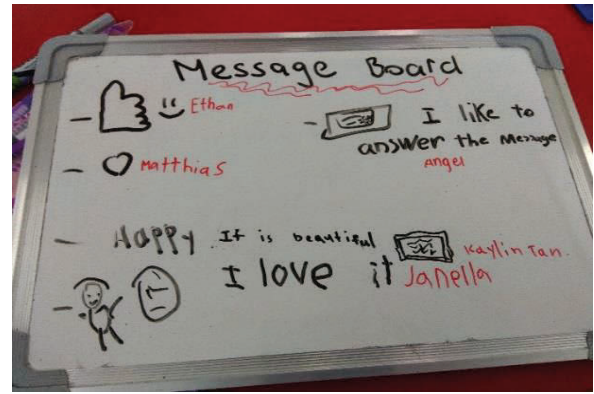 Message Board
Ethan
I like to
answer the Message
Angel
Matthias
HAPPY It is beautiful Kaylin Tan
I love it Janella